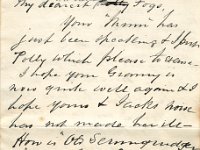 My dearest Polly Togs,
Your "Mimi" has
just been speaking & I
Polly which please to
I hope your Granny is
now quite well again & I
hope yours & Jack's noise
has not made her ill—
How is "Old